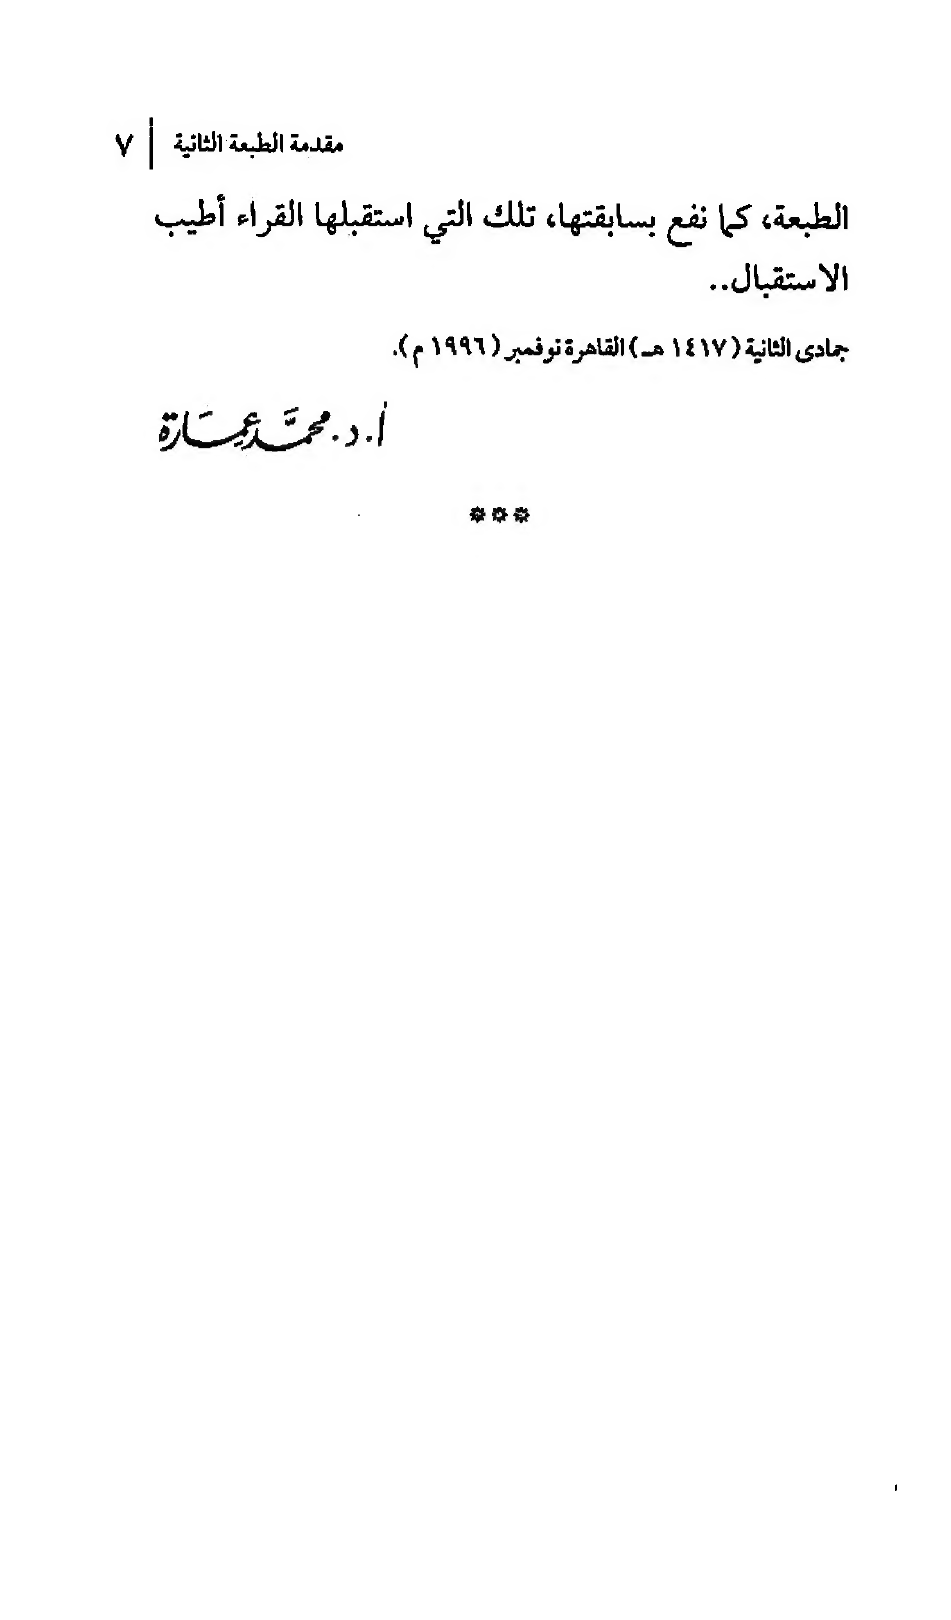 مقدمة الطبعة الثانية | ٧
الطبعة، كما نفع بسابقتها، تلك التي استقبلها القراء أطيب
الاستقبال..
جمادى الثانية (١٤١٧ هـ) القاهرة نوفمبر (١٩٩٦ م).
أ. د. محمَّد عِمَارة
***